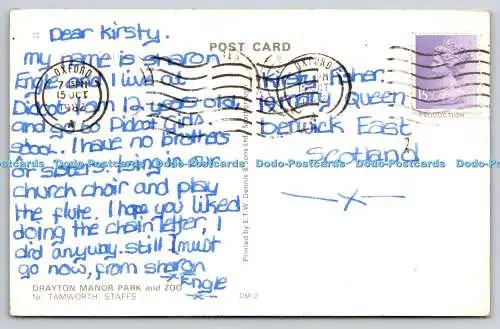 12
Dear Kirsty.
my name is sharon
Engle and I live at
Didcot I am 12 years old,
and go to Didcot Girls
shool. I have no brothers
or sisters. I sing in our
church choir and play
the flute. I hope you liked
doing the chain letter, I
did anyway. still I must
go now, from sharon
Engle
DRAYTON MANOR PARK and ZOO
Nr. TAMWORTH, STAFFS
DM-2
POST CARD
Printed by E.T.W. Dennis & Sons Ltd
OXFORD
15 OCT
1982
Kirsty Fisher.
Queen
Berwick East
Scotland
Dodo-Postcards